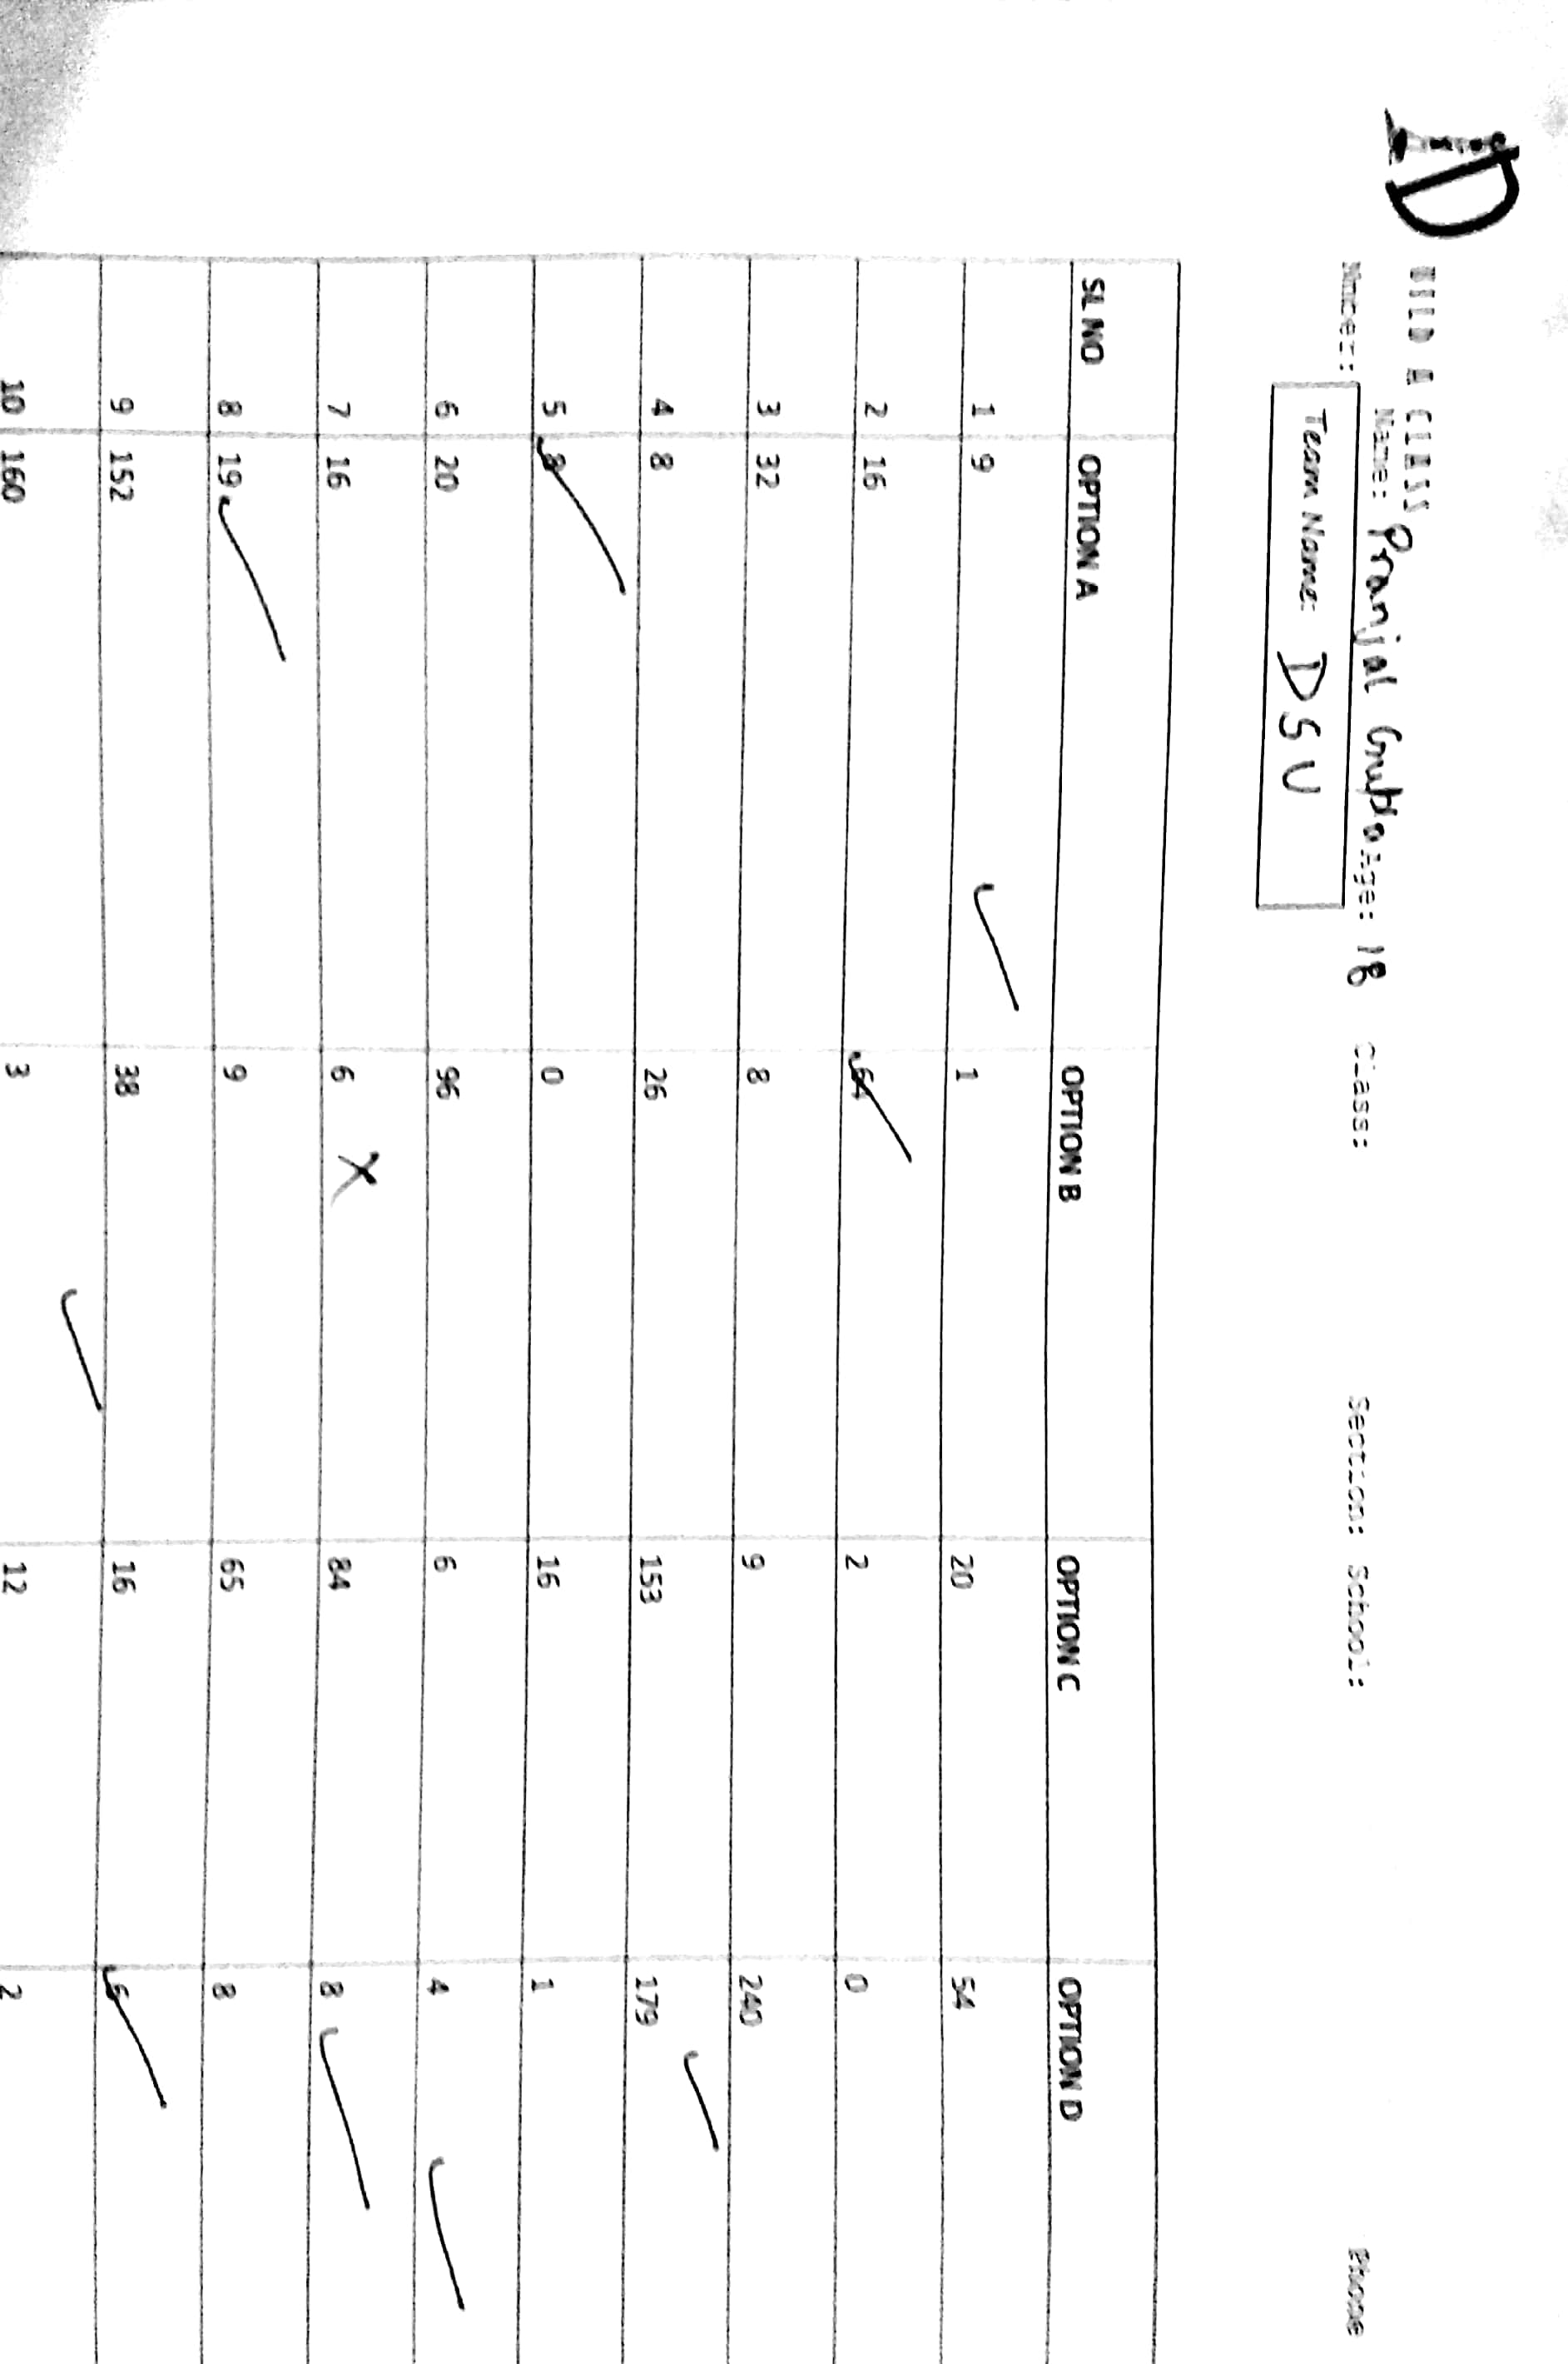 BUILD A CLASS
Name: Pranjal Gupta Age: 18 Class: Section: School: Phone
Number:
Team Name: DSU
SL NO OPTION A OPTION B OPTION C OPTION D
1 9 1 20 54
2 16 64 2 0
3 32 8 9 240
4 8 26 153 179
5 8 0 16 1
6 20 96 6 4
7 16 6 84 8
8 19 9 65 8
9 152 38 16 6
10 160 3 12 2